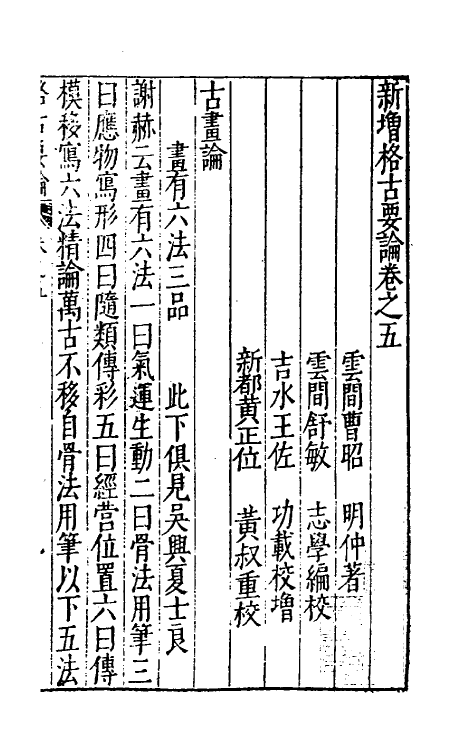 新增格古要論卷之五
雲間曹昭　明仲著
雲間舒敏　志學編校
吉水王佐　功載校增
新都黄正位　黄叔重校
古畫論
畫有六法三品　此下俱見吳興夏士良
謝赫云畫有六法一曰氣運生動二曰骨法用筆三
曰應物寫形四曰隨類傳彩五曰經营位置六曰傳
模移寫六法精論萬古不移自骨法用筆以下五法
格古要論